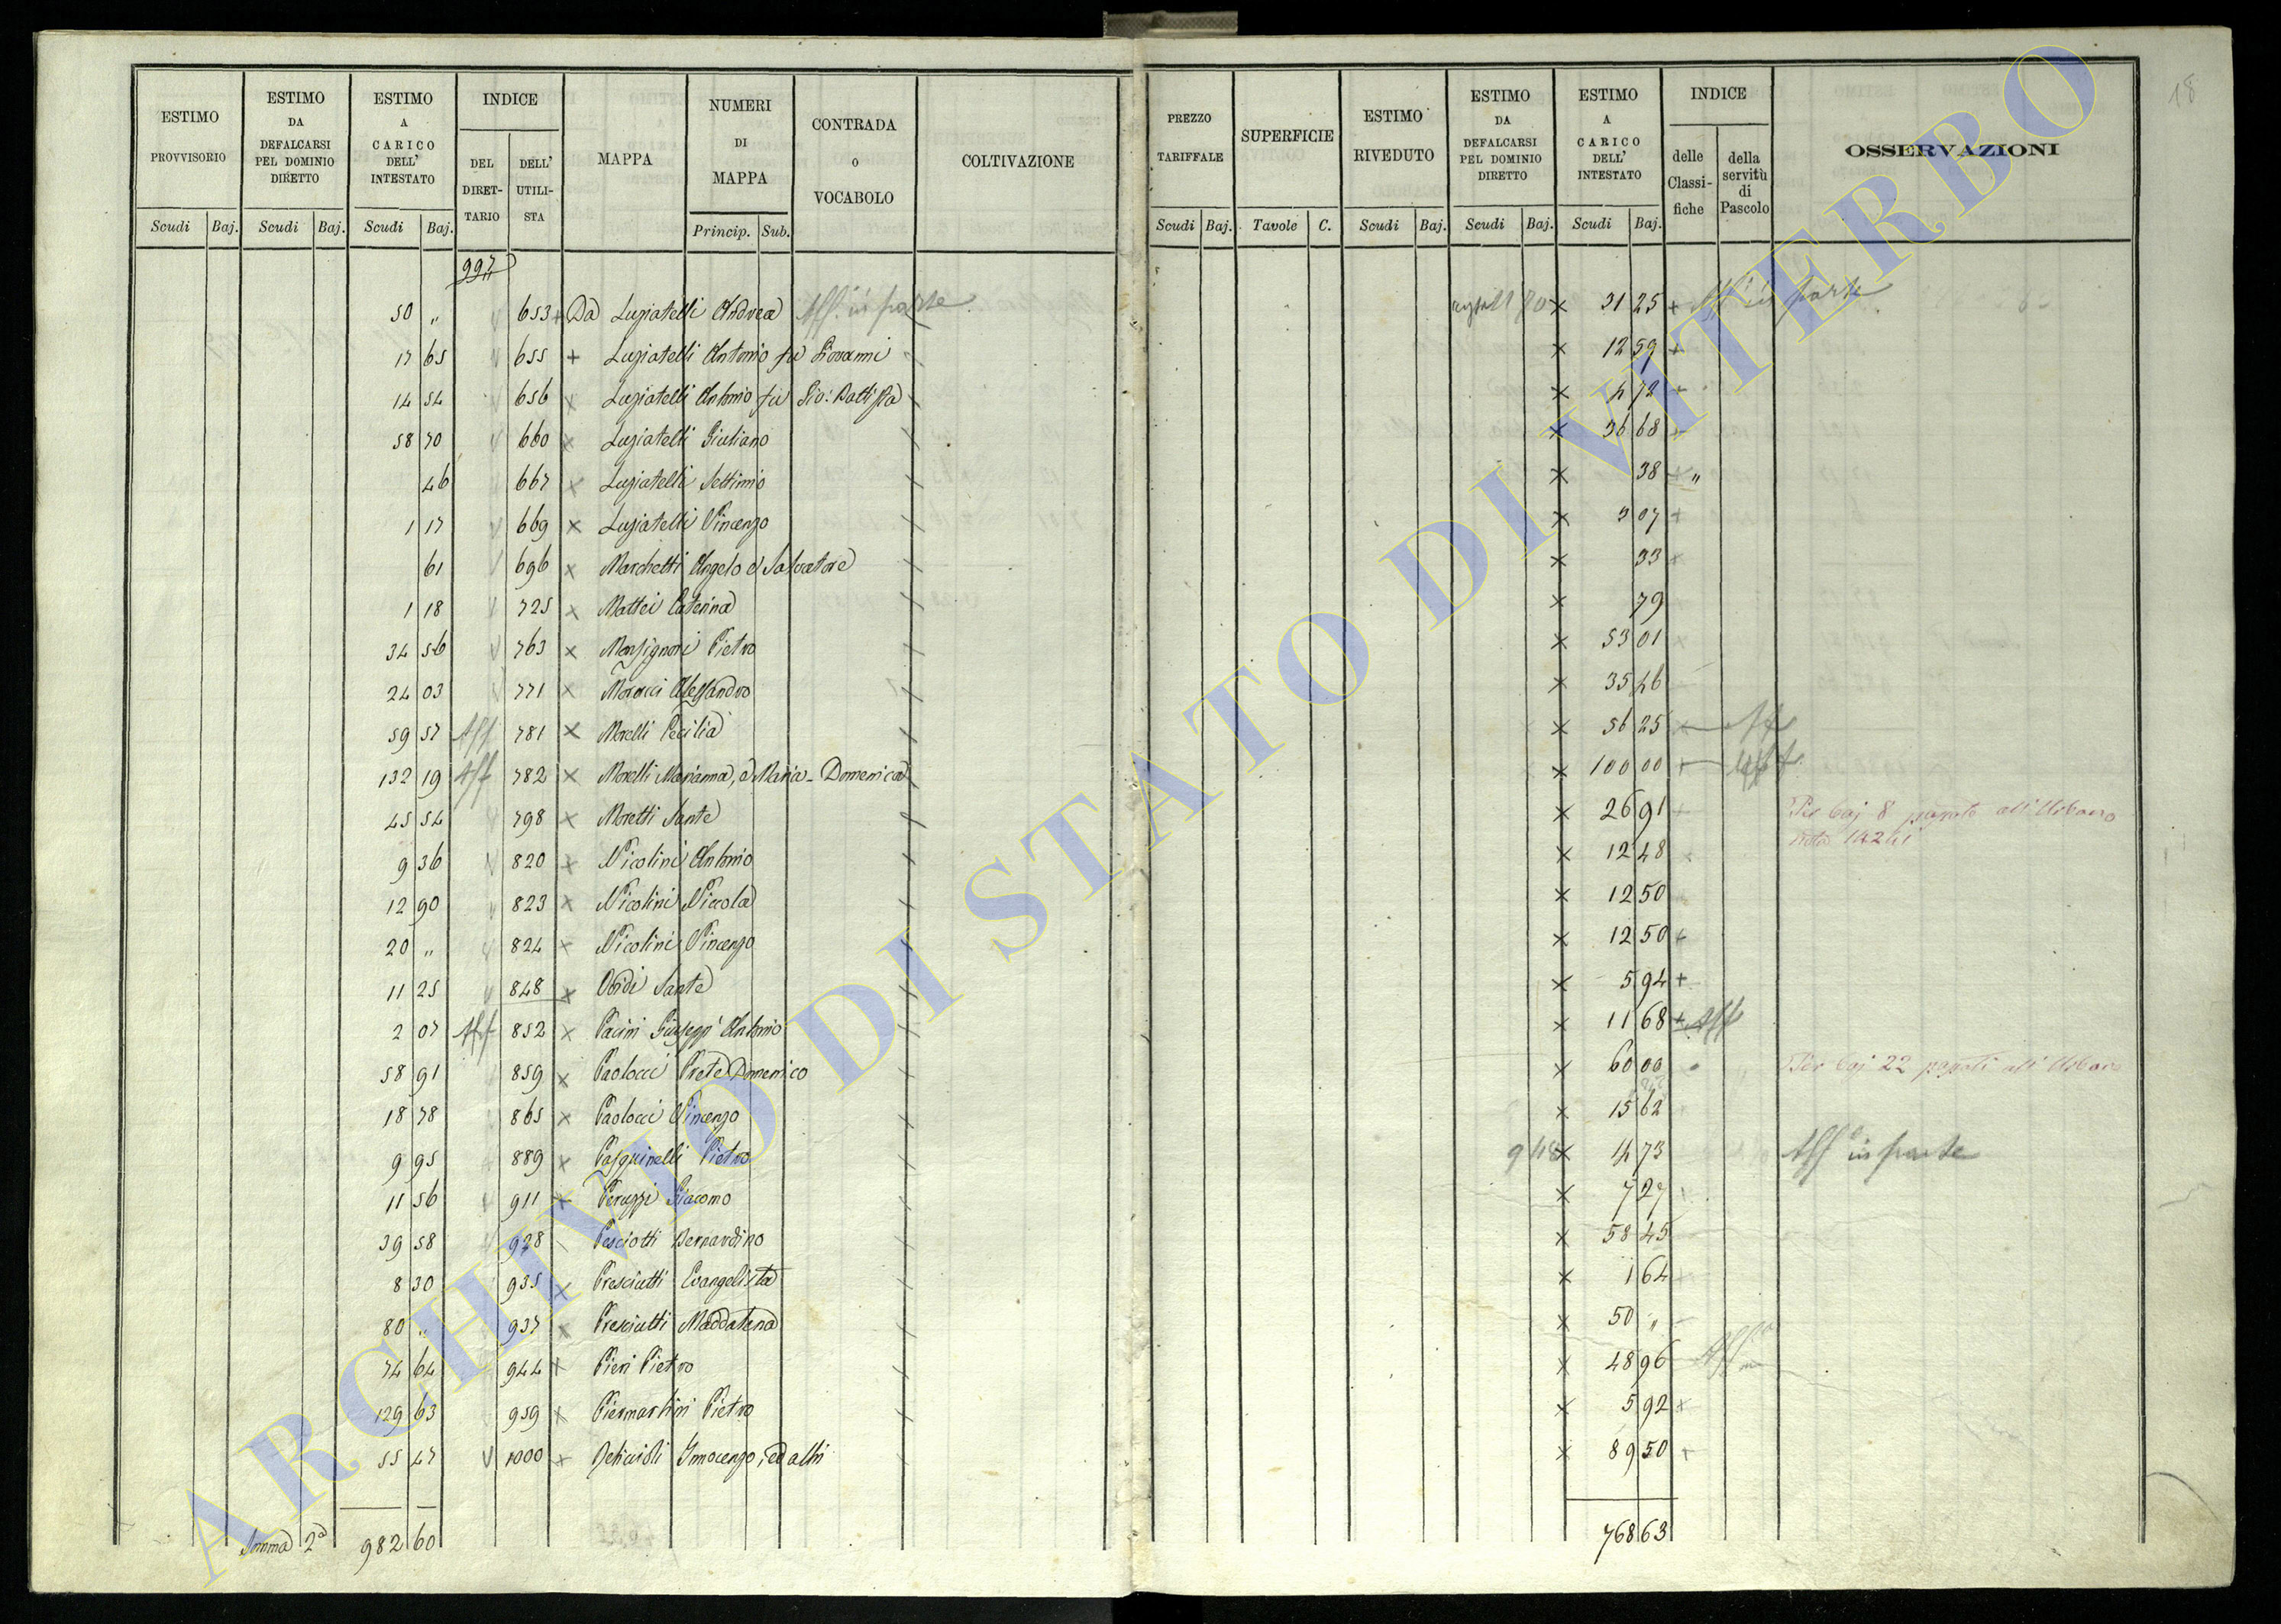 18
ESTIMO PROVVISORIO
ESTIMO DA DEFALCARSI PEL DOMINIO DIRETTO
ESTIMO A CARICO DELL' INTESTATO
INDICE
DEL DIRET-TARIO
DELL' UTILI-STA
MAPPA
NUMERI DI MAPPA
CONTRADA O VOCABOLO
COLTIVAZIONE
PREZZO TARIFFALE
SUPERFICIE
ESTIMO RIVEDUTO
ESTIMO DA DEFALCARSI PEL DOMINIO DIRETTO
ESTIMO A CARICO DELL' INTESTATO
INDICE
delle Classi-fiche
della servitù di Pascolo
OSSERVAZIONI
Scudi Baj. Scudi Baj. Scudi Baj. Princip. Sub. Scudi Baj. Tavole C. Scudi Baj. Scudi Baj. Scudi Baj.
997
50 " 653 + Da Luziatelli Andrea Aff. in parte 80 × 31 25 + Aff. in parte
17 65 655 + Luziatelli Antonio fu Giovanni × 12 59 +
14 54 656 × Luziatelli Antonio fu Gio: Battista × 4 72
58 70 660 × Luziatelli Giuliano × 36 68
46 667 × Luziatelli Settimio × 38 "
1 17 669 × Luziatelli Vincenzo × 3 07 +
61 696 × Marchetti Angelo e Salvatore × 33 +
1 18 725 × Mattei Caterina × 79
34 56 763 × Monsignori Pietro × 53 01
24 03 771 × Moracci Alessandro × 35 46
59 57 Aff 781 × Morelli Cecilia × 56 25 Aff
132 19 Aff 782 × Morelli Marianna, e Maria-Domenica × 100 00 + Aff
45 54 798 × Moretti Sante × 26 91 Per baj 8 all' Urbano
9 36 820 × Nicolini Antonio × 12 48
12 90 823 × Nicolini Niccola × 12 50
20 " 824 × Nicolini Vincenzo × 12 50 +
11 25 848 × Oddi Sante × 5 94 +
2 07 Aff 852 × Pacini Giuseppe Antonio × 11 68 + Aff
58 91 859 × Paolocci Prete Domenico × 60 00 Per baj 22 pagati all' Urbano
18 78 865 × Paolocci Vincenzo × 15 62
9 95 889 × Pasquinelli Pietro 9 48 × 4 73 Aff in parte
11 56 911 × Peruzzi Giacomo × 7 27
39 58 928 Pesciotti Bernardino × 58 45
8 30 935 × Presciutti Evangelista × 1 64
80 " 937 × Presciutti Maddalena × 50 "
74 64 944 × Pieri Pietro × 48 96 Aff
129 63 959 × Piermartini Pietro × 5 92 +
55 47 1000 × Innocenzo, ed altri × 89 50 +
Somma 2a 982 60 768 63
ARCHIVIO DI STATO DI VITERBO